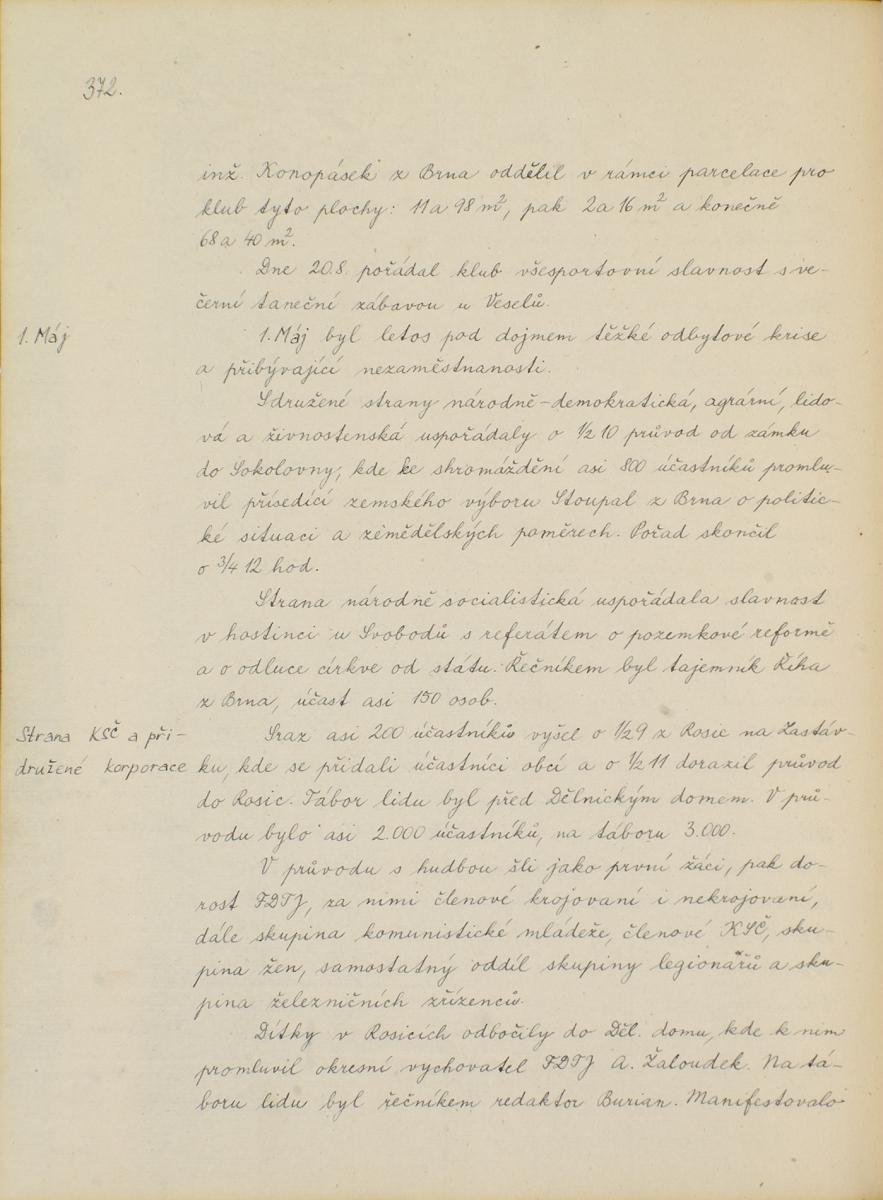 372.
inž. Konopásek z Brna oddělil v rámci parcelace pro
klub tyto plochy: 11a 98 m², pak 2a 16 m² a konečně
68a 40 m².
Dne 20.8. pořádal klub všesportovní slavnost s ve-
černí taneční zábavou u Veselů.
1. Máj
1. Máj byl letos pod dojmem těžké odbytové krise
a přibývající nezaměstnanosti.
Sdružené strany národně-demokratická, agrární, lido-
vá a živnostenská uspořádaly o 1/2 10 průvod od zámku
do Sokolovny, kde ke shromáždění asi 800 účastníků promlu-
vil přísedící zemského výboru Stoupal z Brna o politic-
ké situaci a zemědělských poměrech. Pořad skončil
o 3/4 12 hod.
Strana národně socialistická uspořádala slavnost
v hostinci u Svobodů s referátem o pozemkové reformě
a o odluce církve od státu. Řečníkem byl tajemník Říha
z Brna, účast asi 150 osob.
Strana KSČ a při-
družené korporace
Sraz asi 200 účastníků vyšel o 1/2 9 z Rosic na Zastáv-
ku, kde se přidali účastníci obcí a o 1/2 11 dorazil průvod
do Rosic. Tábor lidu byl před Dělnickým domem. V prů-
vodu bylo asi 2.000 účastníků, na táboru 3.000.
V průvodu s hudbou šli jako první žáci, pak do-
rost FDTJ, za nimi členové krojovaní i nekrojovaní,
dále skupina komunistické mládeže, členové KSČ, sku-
pina žen, samostatný oddíl skupiny legionářů a sku-
pina železničních zřízenců.
Dítky v Rosicích odbočily do Děl. domu, kde k nim
promluvil okresní vychovatel FDTJ A. Žaloudek. Na tá-
boru lidu byl řečníkem redaktor Burian. Manifestovalo